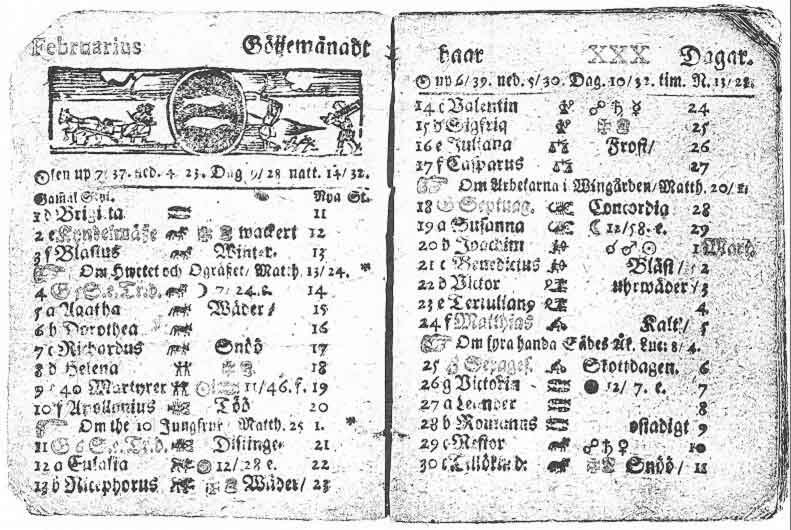 Februarius Göijemånadt
Solen up 7/37. ned. 4. 23. Dag 9/28 natt. 14/32.
Gamal Styl. Nya St.
1 d Brigitta 11
2 e Kyndelmässe wackert 12
3 f Blasius Winter. 13
Om Hwetet och Ogräset/ Matth. 13/24.
4 G 5 S. e. Tr. d. 7/24. e. 14
5 a Agatha Wäder/ 15
6 b Dorothea 16
7 c Richardus Snöö 17
8 d Helena 18
9 e 40 Martyrer 11/46. f. 19
10 f Apollonius Töö 20
Om the 10 Jungfrur Matth. 25 1.
11 G 6 S. e. Tr. d. Distinge 21
12 a Eulalia 12/28 e. 22
13 b Nicephorus Wäder/ 23
haar XXX Dagar.
up 6/39. ned. 5/30. Dag. 10/32. tim. N. 13/28.
14 c Valentin ☍ ♄ ☿ 24
15 d Sigfrid 25
16 e Juliana Frost/ 26
17 f Casparus 27
Om Arbetarna i Wingården/ Matth. 20/1.
18 G Septuag. Concordia 28
19 a Susanna ☾ 12/58. e. 29
20 b Joachim ☌ ♂ ☉ 1 Mart.
21 c Benedictus Bläst/ 2
22 d Victor uhrwäder/ 3
23 e Tertulian9 4
24 f Matthias Kalt/ 5
Om fyra handa Sädes Åk. Luc: 8/4.
25 G Sexages. Skottdagen. 6
26 g Victorin ● 12/7. e. 7
27 a Leander 8
28 b Romanus ostadigt 9
29 c Nestor ☍ ♄ ♀ 10
30 c Snöö/ 11